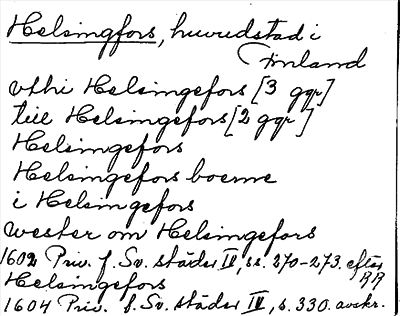 Helsingfors, huvudstad i
Finland
vthi Helsingefors [3 ggr]
till Helsingefors [2 ggr]
Helsingefors
Helsingefors boerne
i Helsingefors
wester om Helsingefors
1602 Priv. f. Sv. städer IV, ss. 270-273. efter RR
Helsingefors
1604 Priv. f. Sv. städer IV, s. 330. avskr.